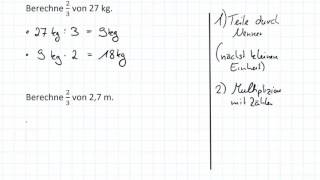 Berechne 2/3 von 27 kg.
• 27 kg : 3 = 9 kg
• 9 kg · 2 = 18 kg
Berechne 2/3 von 2,7 m.
1) Teile durch
Nenner
(nächst kleinere
Einheit)
2) Multipliziere
mit Zähler